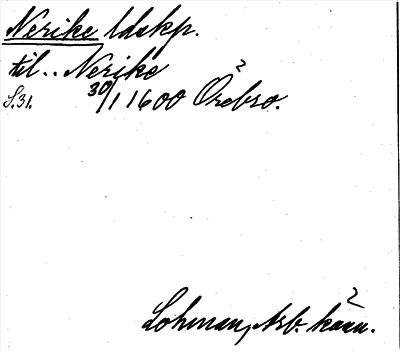 Nerike ldskp.
til.. Nerike
S.31. 30/1 1600 Örebro.
Lohman, Arb. känn.